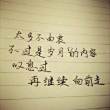 太多不由衷
不过是岁月的内容
叹息过
再继续向前走